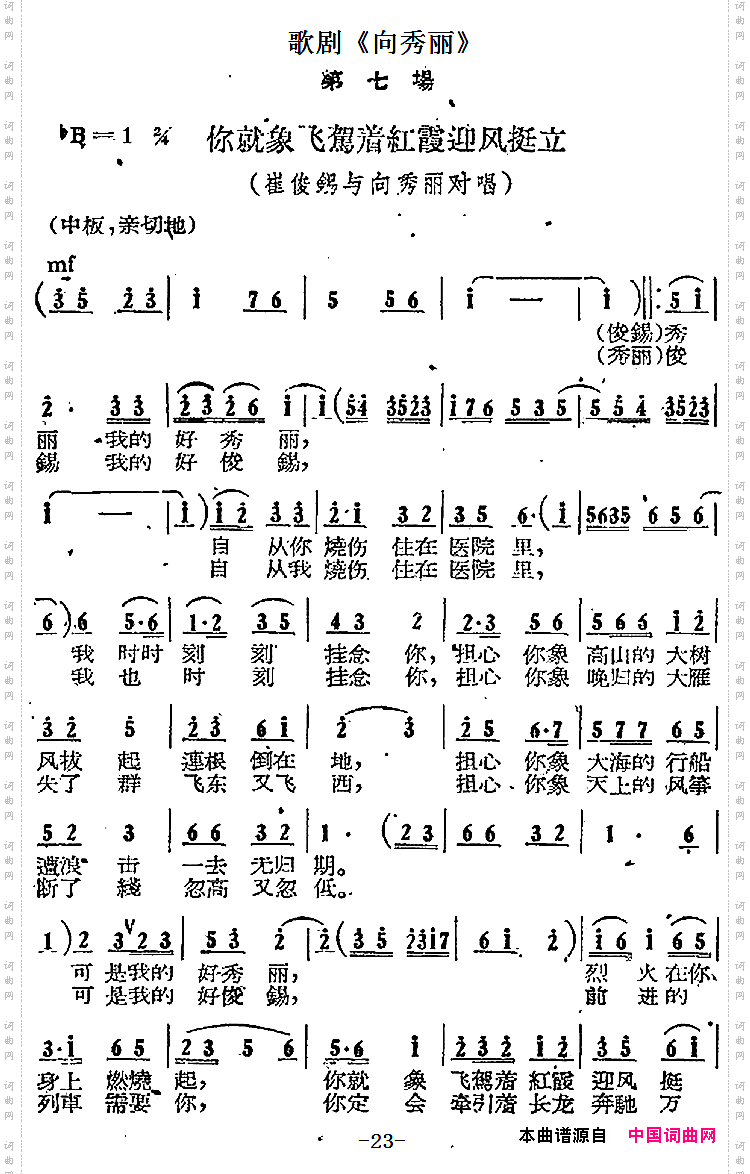 歌剧《向秀丽》
第七場
♭B=1 2/4 你就象飞駕着紅霞迎风挺立
(崔俊錫与向秀丽对唱)
(中板,亲切地)
mf
(俊錫)秀
(秀丽)俊
丽 我的 好 秀 丽,
錫 我的 好 俊 錫,
自 从你 燒伤 住在 医院 里,
自 从我 燒伤 住在 医院 里,
我 时时 刻 刻 挂念 你, 担心 你象 高山的 大树
我 也 时 刻 挂念 你, 担心 你象 晚归的 大雁
风拔 起 連根 倒在 地, 担心 你象 大海的 行船
失了 群 飞东 又飞 西, 担心 你象 天上的 风筝
遭浪 击 一去 无归 期。
断了 綫 忽高 又忽 低。
可 是我的 好秀 丽, 烈 火在你、
可 是我的 好俊 錫, 前 进的
身上 燃燒 起, 你就 象 飞駕着 紅霞 迎风 挺
列車 需要 你, 你定 会 牽引着 长龙 奔馳 万
-23-
本曲谱源自 中国词曲网